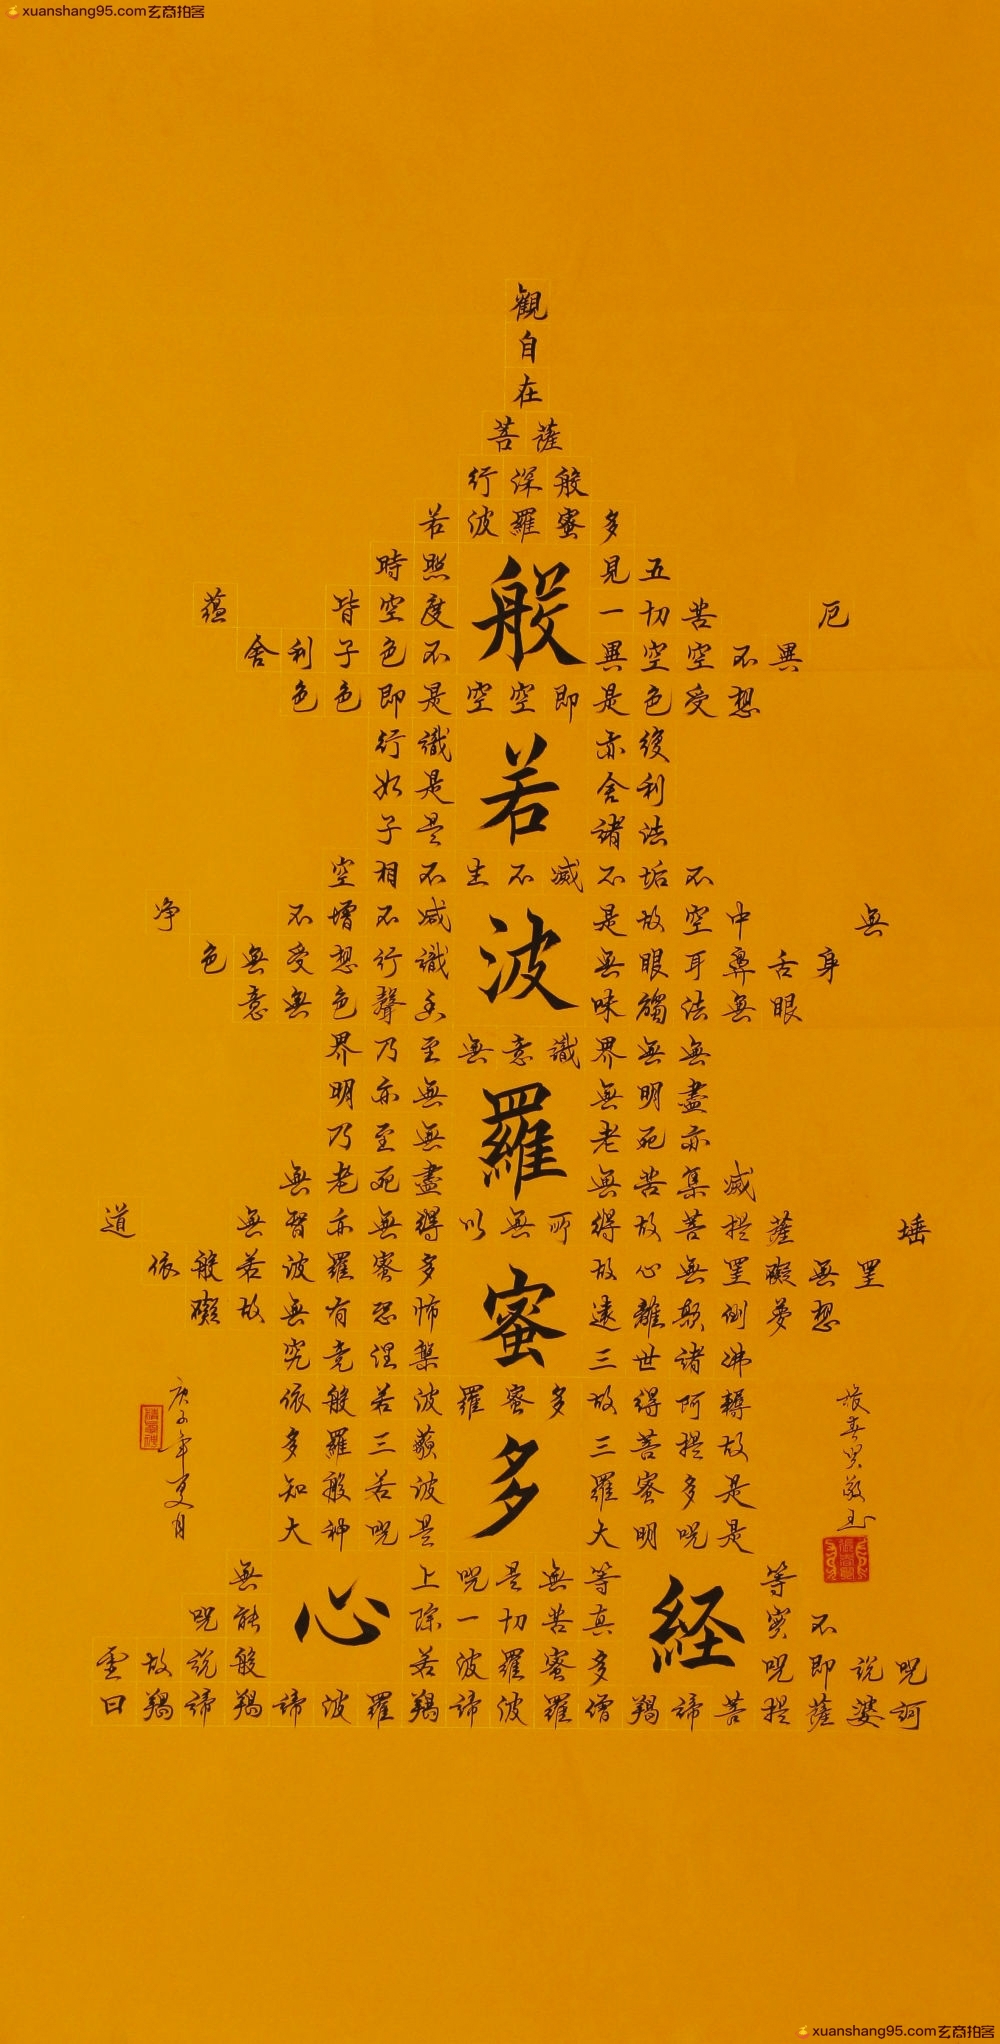 xuanshang95.com玄商拍客
觀
自
在
菩薩
行深般
若波羅蜜多
時照見五
蘊皆空度一切苦厄
舍利子色不異空空不異
色色即是空空即是色受想
行識亦復
如是舍利
子是諸法
空相不生不滅不垢不
净不增不减是故空中無
色無受想行識無眼耳鼻舌身
意無色聲香味觸法無眼
界乃至無意識界無無
明亦無無明盡
乃至無老死亦
無老死盡無苦集滅
道無智亦無得以無所得故菩提薩埵
依般若波羅蜜多故心無罣礙無罣
礙故無有恐怖遠離顛倒夢想
究竟涅槃三世諸沸
依般若波羅蜜多故得阿耨
多羅三藐三菩提故
知般若波羅蜜多是
大神咒是大明咒是
無上咒是無等等
咒能除一切苦真實不
虛故説般若波羅蜜多咒即説咒
曰羯諦羯諦波羅羯諦波羅僧羯諦菩提薩婆訶
般若波羅蜜多
心経
庚子年夏月
張春賢敬书
xuanshang95.com玄商拍客